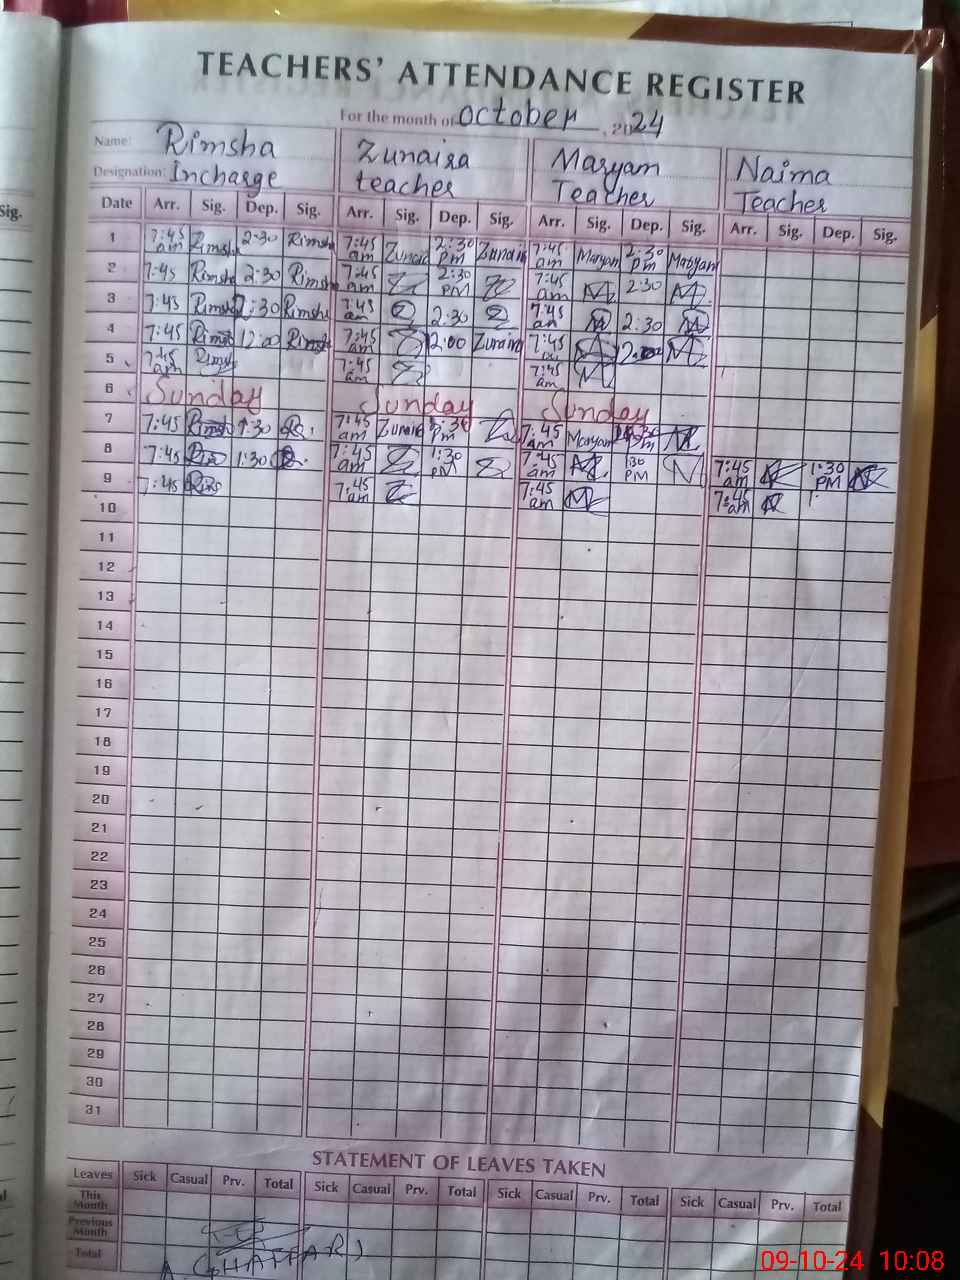 TEACHERS' ATTENDANCE REGISTER
For the month of October, 2024
Name: Rimsha Zunaira Maryam Naima
Designation: Incharge teacher Teacher Teacher
Sig.
Date Arr. Sig. Dep. Sig. Arr. Sig. Dep. Sig. Arr. Sig. Dep. Sig. Arr. Sig. Dep. Sig.
1 7:45 am Rimsha 2:30 Rimsha 7:45 am Zunaira 2:30 PM Zunaira 7:45 am Maryam 2:30 pm Maryam
2 7:45 Rimsha 2:30 Rimsha 7:45 am 2:30 PM 7:45 am 2:30
3 7:45 Rimsha 2:30 Rimsha 7:45 am 2:30 7:45 am 2:30
4 7:45 Rimsha 12:00 Rimsha 7:45 am 12:00 Zunaira 7:45
5 7:45 am Rimsha 7:45 am 7:45 am
6 Sunday Sunday Sunday
7 7:45 Rimsha 1:30 7:45 am Zunaira 7:45 am Maryam
8 7:45 1:30 7:45 am 1:30 PM 7:45 am 1:30 PM 7:45 am 1:30 PM
9 7:45 7:45 am 7:45 am 7:45 am
10
11
12
13
14
15
16
17
18
19
20
21
22
23
24
25
26
27
28
29
30
31
STATEMENT OF LEAVES TAKEN
Leaves Sick Casual Prv. Total Sick Casual Prv. Total Sick Casual Prv. Total Sick Casual Prv. Total
This Month
Previous Month
Total
09-10-24 10:08